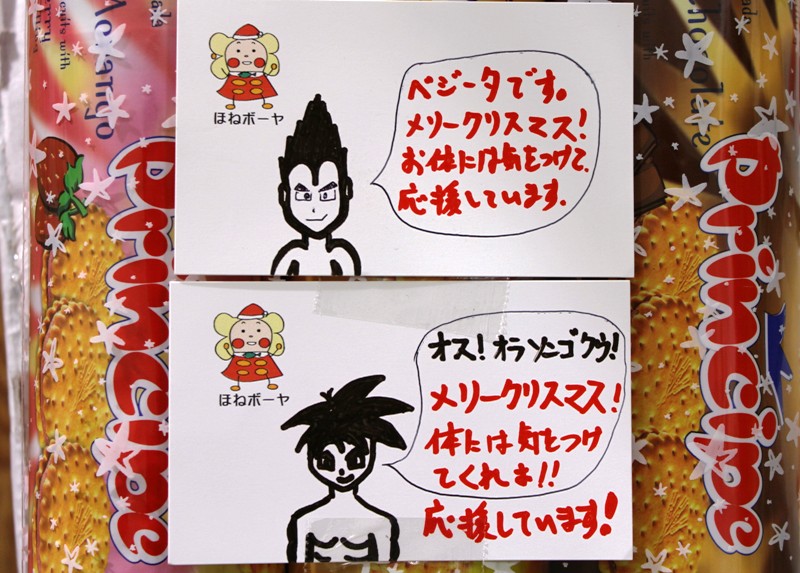 ほねボーヤ
ベジータです。
メリークリスマス!
お体には気をつけて、
応援しています.
ほねボーヤ
オス!オラソンゴクウ!
メリークリスマス!
体には気をつけ
てくれよ!!
応援しています!
Principe
Principe
Chocolate